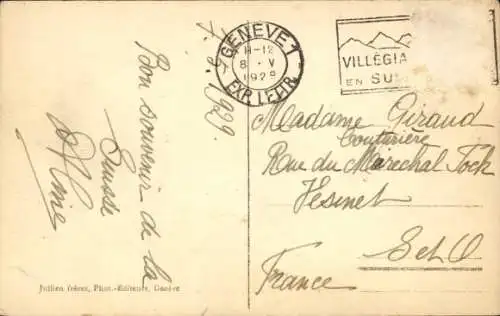 GENÈVE 1
11-12
8·V
1929
EXP. LETTR.
VILLÉGIA
EN SU
1929
Bon souvenir de la
Suisse
Madame Giraud
Couturière
Rue du Maréchal Foch
Vesinet
S et O
France
Jullien frères, Phot.-Editeurs, Genève